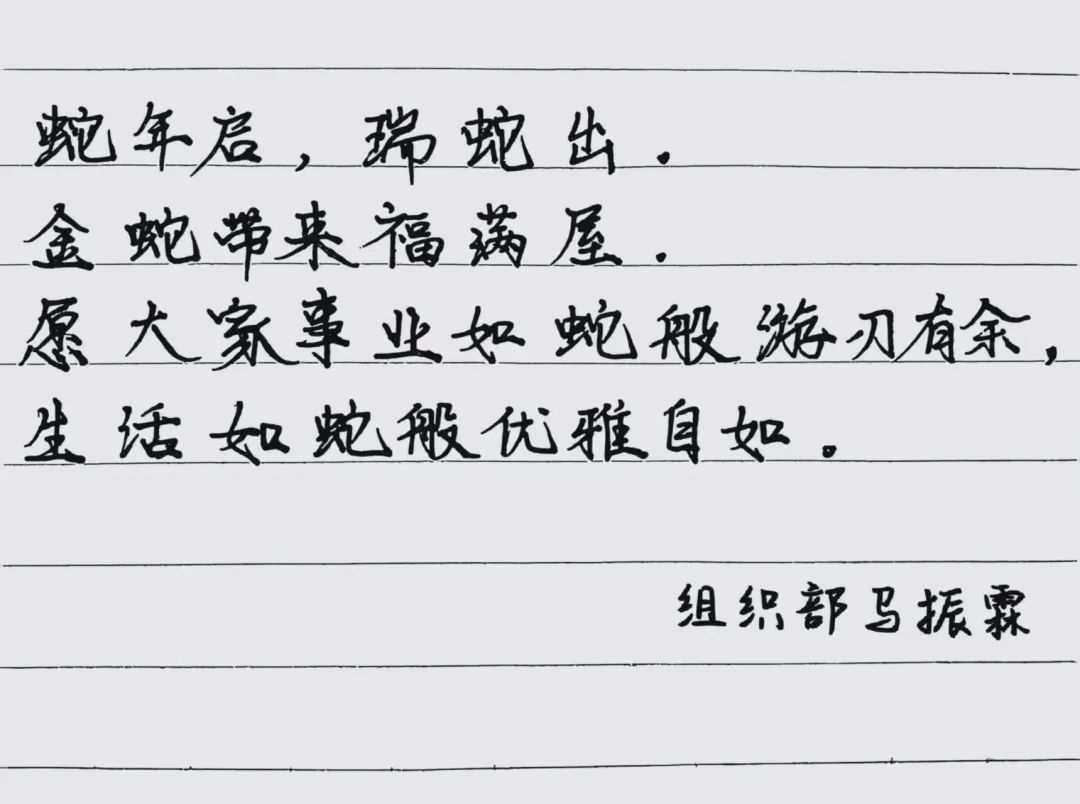 蛇年启，瑞蛇出.
金蛇带来福满屋.
愿大家事业如蛇般游刃有余，
生活如蛇般优雅自如。
组织部马振霖